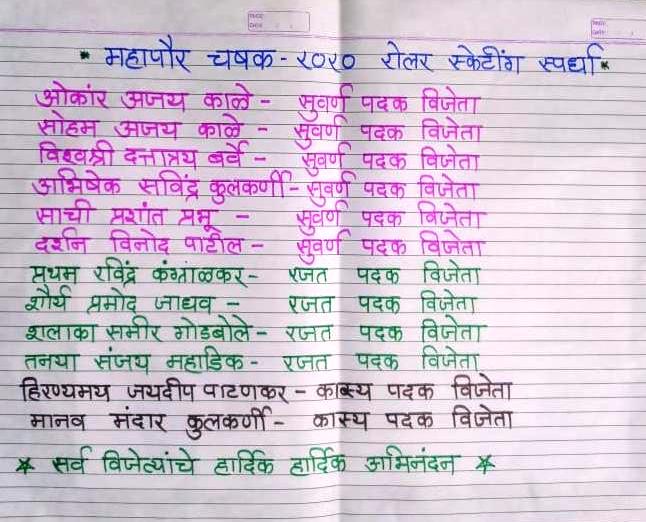 * महापौर चषक - २०२० रोलर स्केटींग स्पर्धा *
ओंकार अजय काळे - सुवर्ण पदक विजेता
सोहम अजय काळे - सुवर्ण पदक विजेता
विश्वश्री दत्तात्रय बर्वे - सुवर्ण पदक विजेता
अभिषेक सविंद्र कुलकर्णी - सुवर्ण पदक विजेता
साची प्रशांत प्रभू - सुवर्ण पदक विजेता
दर्शन विनोद पाटील - सुवर्ण पदक विजेता
प्रथम रविंद्र कंग्राळकर - रजत पदक विजेता
शौर्य प्रमोद जाधव - रजत पदक विजेता
शलाका समीर गोडबोले - रजत पदक विजेता
तनया संजय महाडिक - रजत पदक विजेता
हिरण्यमय जयदीप पाटणकर - कास्य पदक विजेता
मानव मंदार कुलकर्णी - कास्य पदक विजेता
* सर्व विजेत्यांचे हार्दिक हार्दिक अभिनंदन *